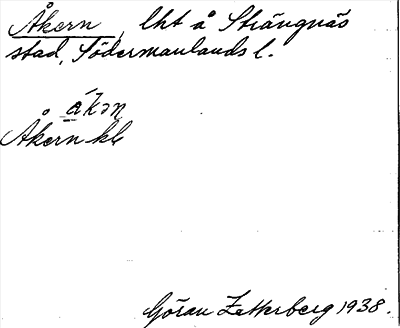 Åkern, lht å Strängnäs
stad, Södermanlands l.
Åkern kb
Göran Zetterberg 1938.